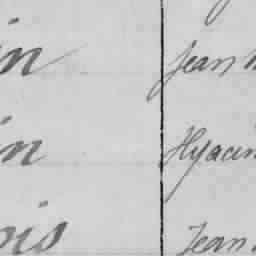 in Jean
in Hyacin
ois Jean